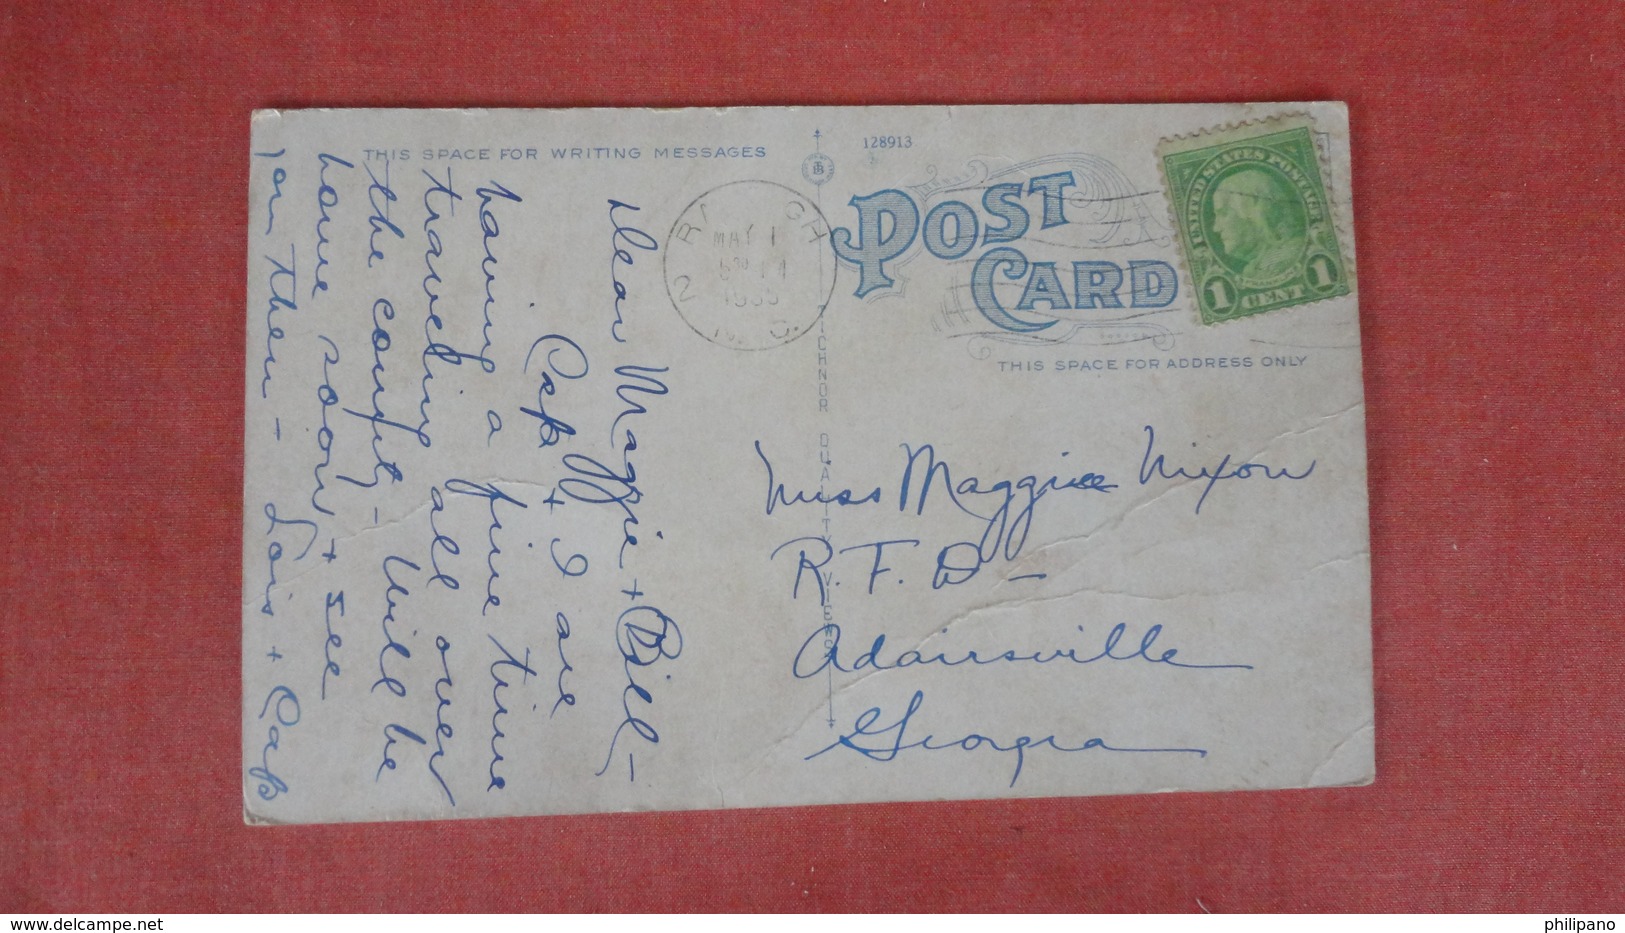 THIS SPACE FOR WRITING MESSAGES
Dear Maggie + Bill -
Cap + I are
having a fine time
traveling all over
the county - Will be
home soon, + see
you then - Lois + Cap
MAY 1
2
128913
POST
CARD
THIS SPACE FOR ADDRESS ONLY
TICHNOR QUALITY VIEWS
UNITED STATES POSTAGE
1 CENT 1
Miss Maggie Nixon
R. F. D -
Adairsville
Georgia
philipano